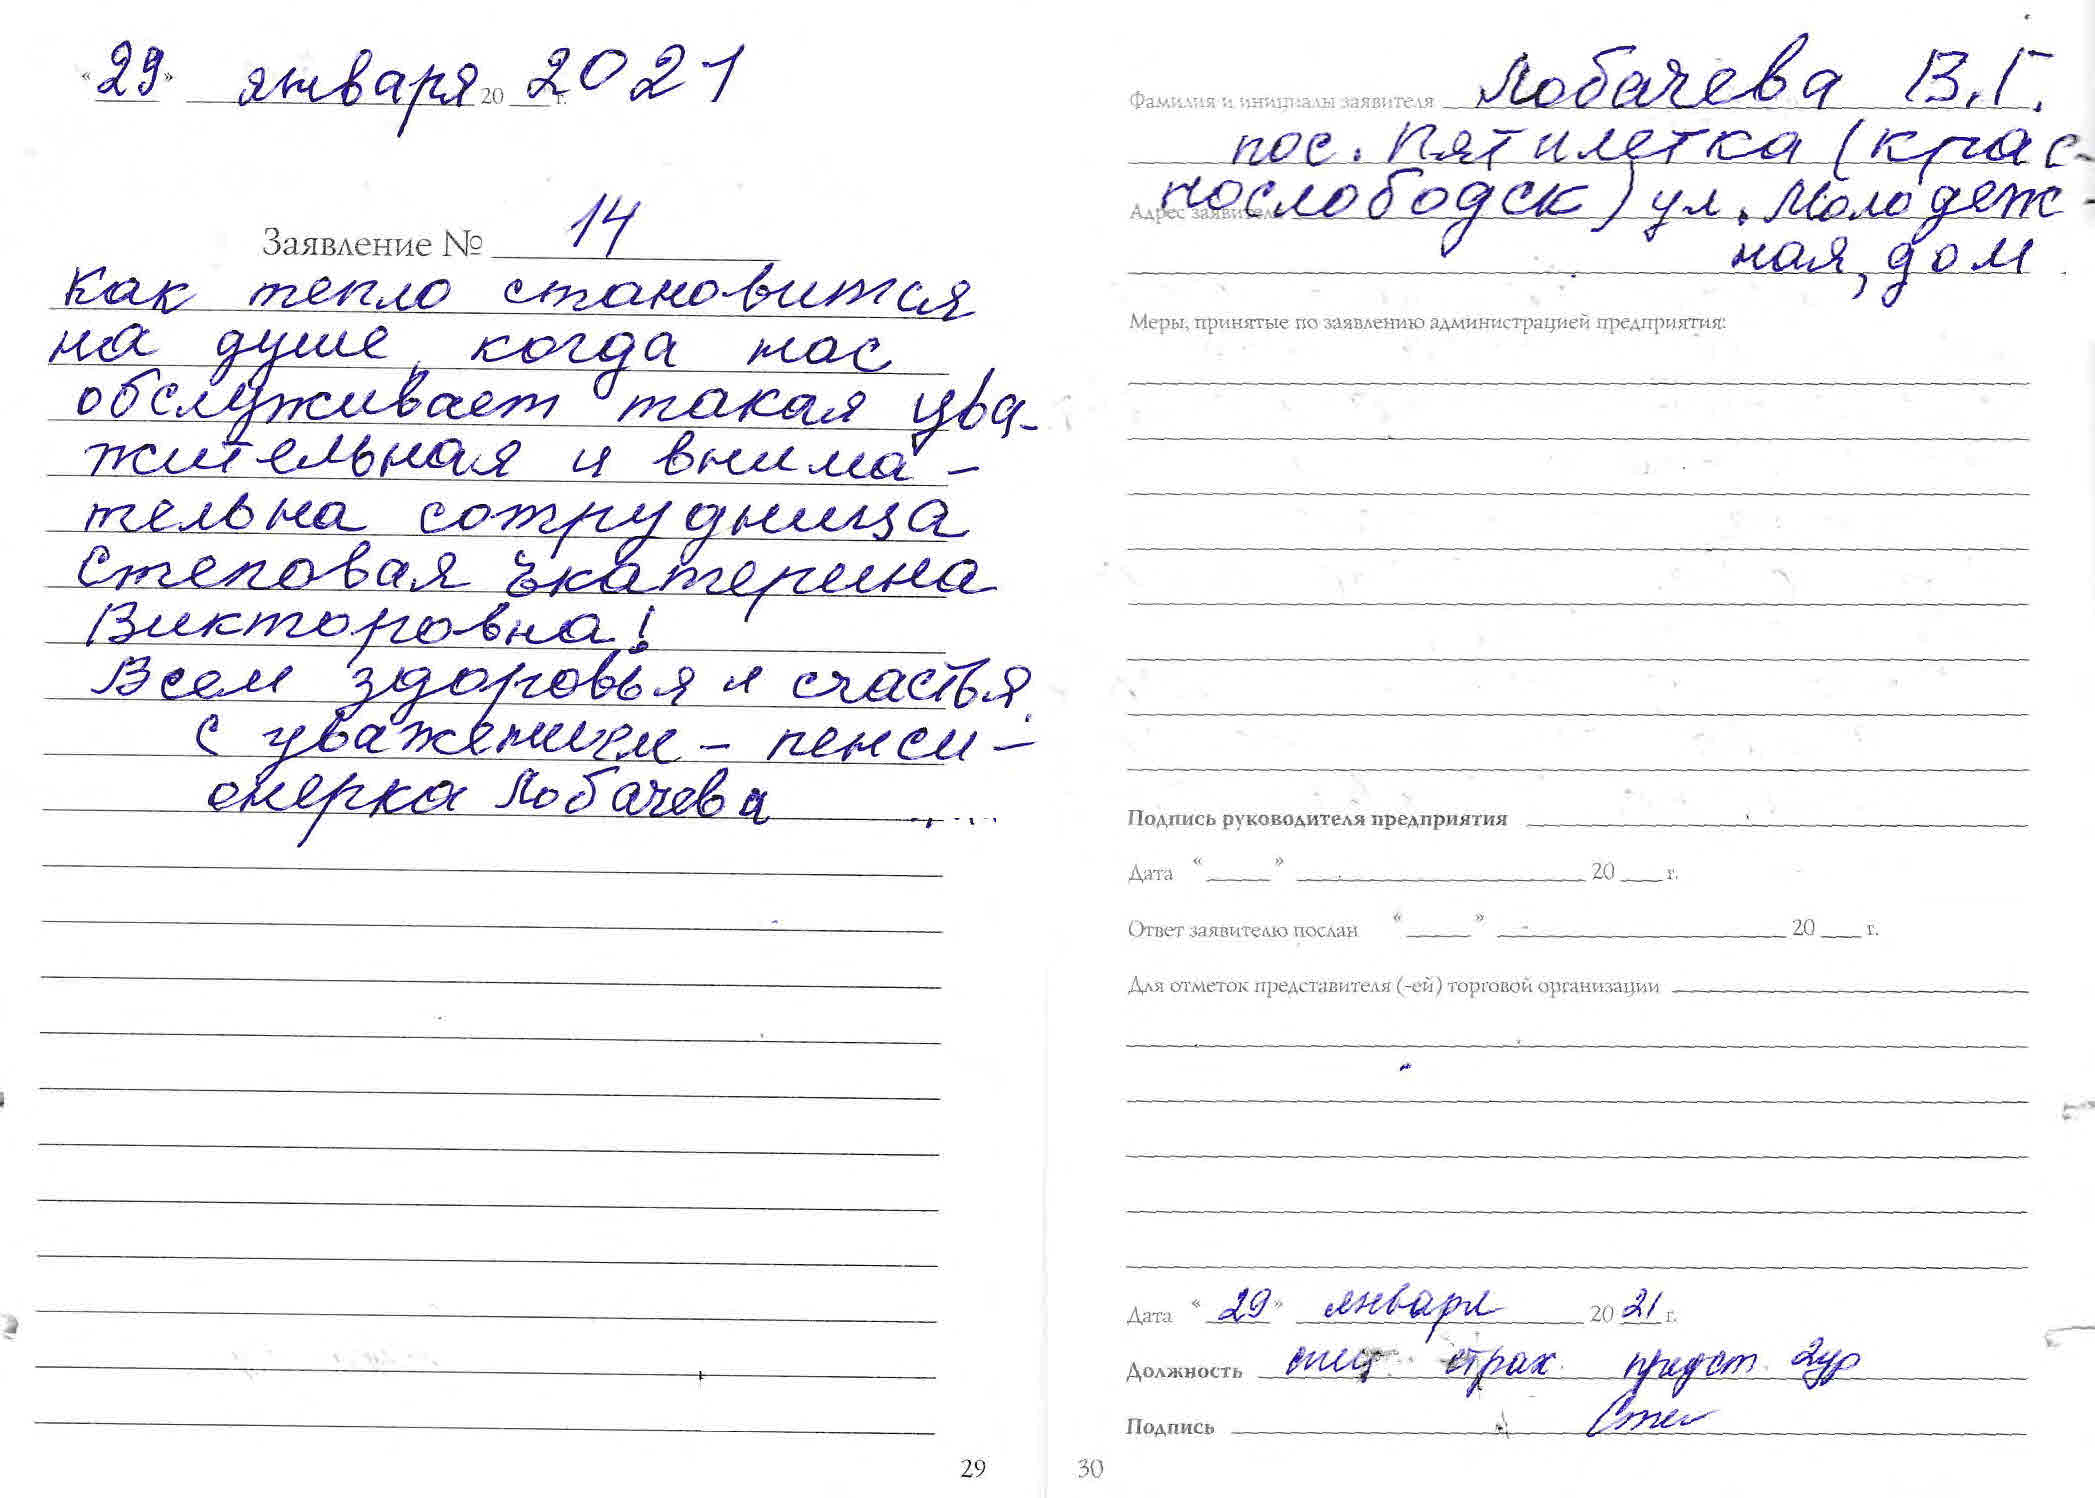 «29» января 20 2021 г.
Заявление № 14
Как тепло становится
на душе, когда нас
обслуживает такая ува-
жительная и внима-
тельна сотрудница
Степовая Екатерина
Викторовна!
Всем здоровья и счастья.
с уважением - пенси-
онерка Лобачева
29
Фамилия и инициалы заявителя Лобачева В.Г.
пос. Пятилетка (Крас-
Адрес заявителя нослободск) ул. Молодеж-
ная, дом
Меры, принятые по заявлению администрацией предприятия:
Подпись руководителя предприятия
Дата “ ” 20 г.
Ответ заявителю послан “ ” 20 г.
Для отметок представителя (-ей) торговой организации
Дата “29” января 20 21 г.
Должность спец. страх. предст.
Подпись
30